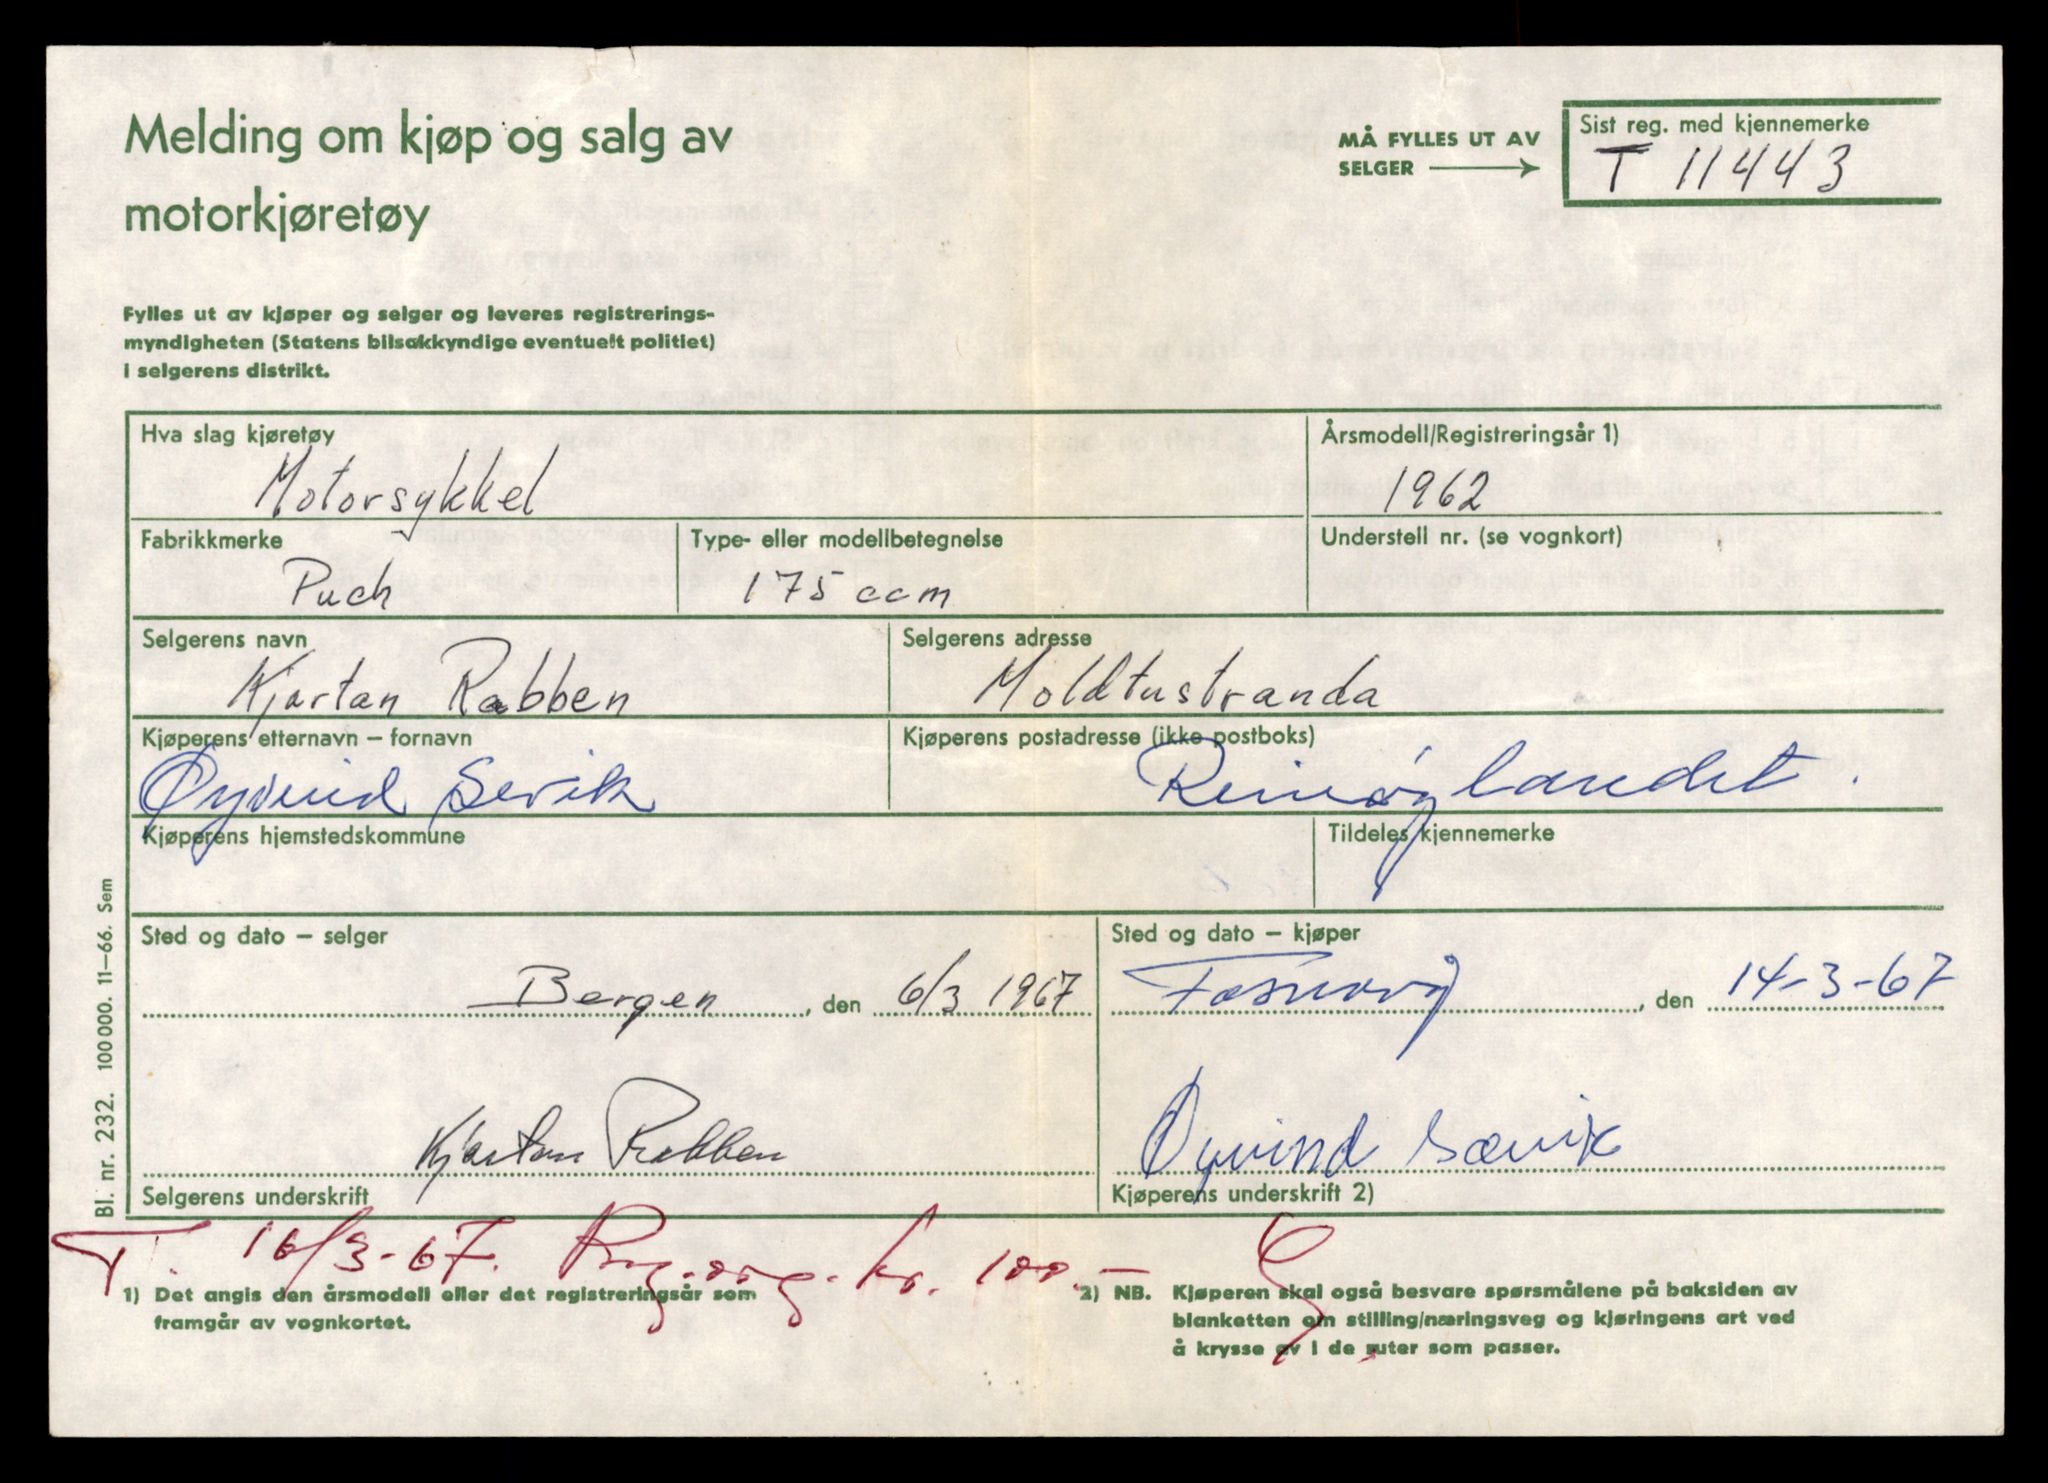 Melding om kjøp og salg av
motorkjøretøy
MÅ FYLLES UT AV
SELGER
Sist reg. med kjennemerke
T 11443
Fylles ut av kjøper og selger og leveres registrerings-
myndigheten (Statens bilsakkyndige eventuelt politiet)
i selgerens distrikt.
Hva slag kjøretøy
Motorsykkel
Årsmodell/Registreringsår 1)
1962
Fabrikkmerke
Puch
Type- eller modellbetegnelse
175 ccm
Understell nr. (se vognkort)
Selgerens navn
Kjartan Rabben
Selgerens adresse
Moldtustranda
Kjøperens etternavn – fornavn
Øyvind Sevik
Kjøperens postadresse (ikke postboks)
Reinøylandet.
Kjøperens hjemstedskommune
Tildeles kjennemerke
Sted og dato – selger
Bergen, den 6/3 1967
Sted og dato – kjøper
Fosnavåg, den 14-3-67
Kjartan Rabben
Selgerens underskrift
Øyvind Sævik
Kjøperens underskrift 2)
T. 16/3-67. Reg.avg. kr. 100.-
1) Det angis den årsmodell eller det registreringsår som
framgår av vognkortet.
2) NB. Kjøperen skal også besvare spørsmålene på baksiden av
blanketten om stilling/næringsveg og kjøringens art ved
å krysse av i de ruter som passer.
Bl. nr. 232. 100 000. 11–66. Sem